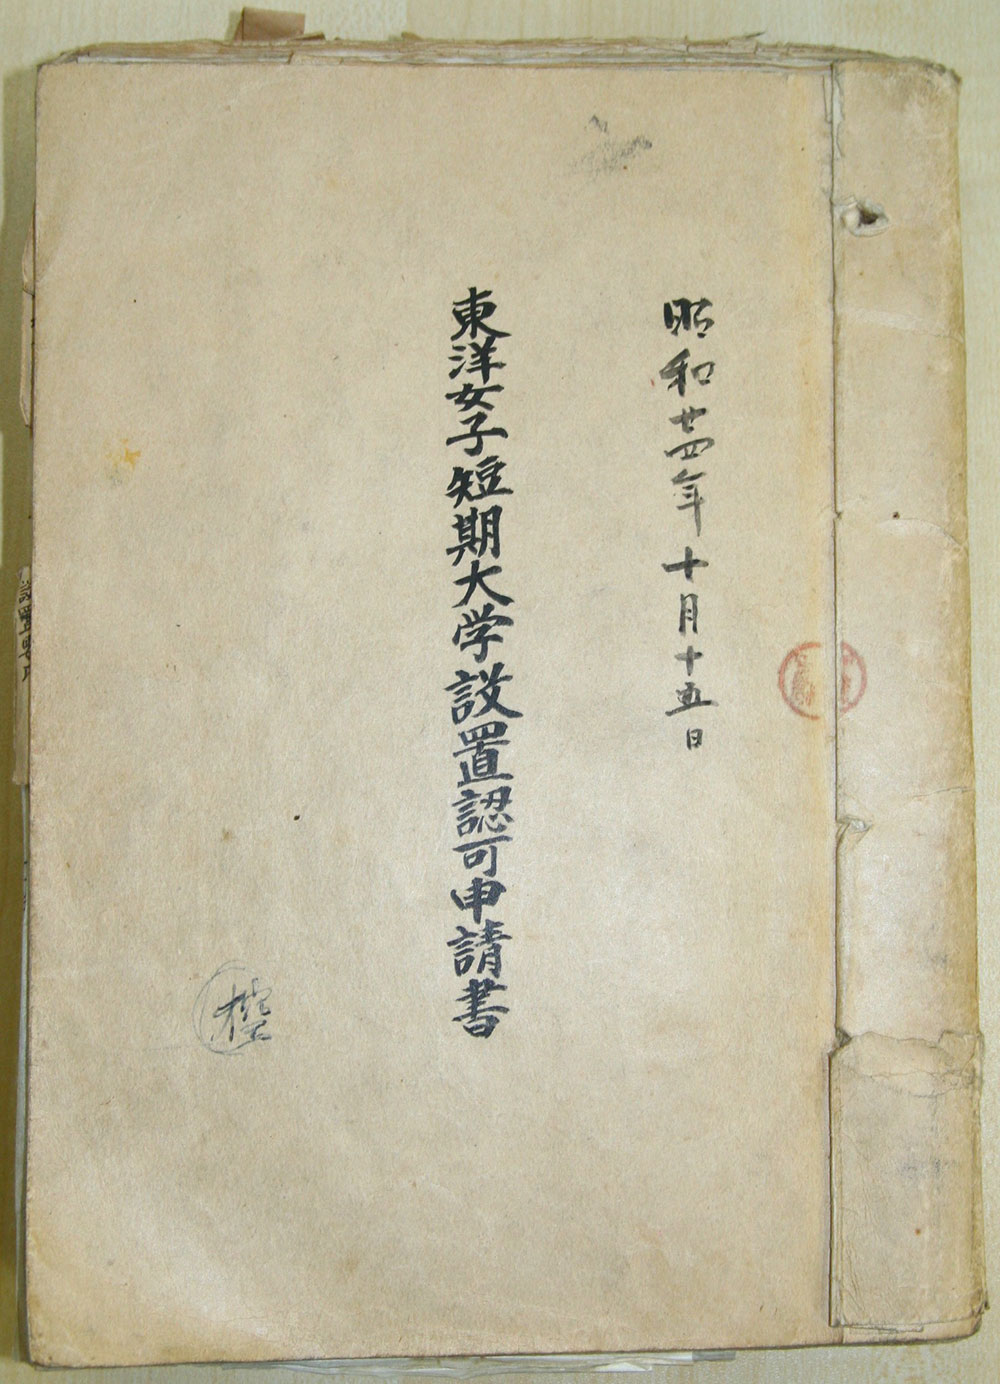 昭和廿四年十月十五日
東洋女子短期大学設置認可申請書